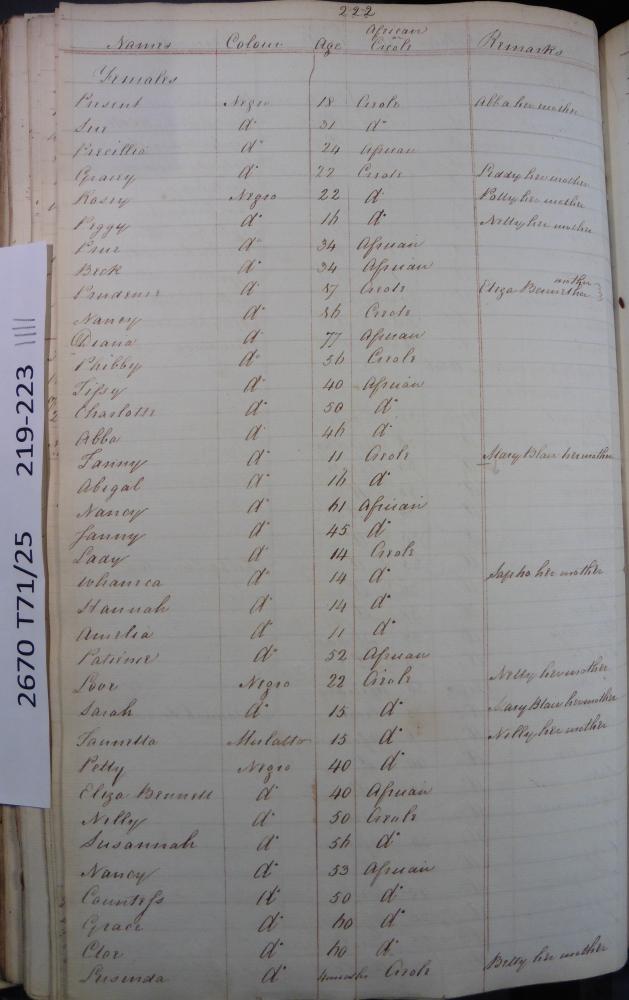 222
Names Colour Age African or Creole Remarks
Females
Present Negro 18 Creole Abba her mother
Sue do 31 do
Precillia do 24 African
Gracy do 22 Creole her mother
Rosey Negro 22 do Polly her mother
Peggy do 16 do Nelly her mother
Prue do 34 African
Beck do 34 African
Prudence do 57 Creole Eliza mother
Nancy do 56 Creole
Diana do 77 African
Phibby do 36 Creole
Tipsy do 40 African
Charlotte do 50 do
Abba do 46 do
Fanny do 11 Creole Mary Blair her mother
Abegal do 16 do
Nancy do 61 African
Fanny do 45 do
Lady do 14 Creole
Whanica do 14 do Sapho her mother
Hannah do 14 do
Amelia do 11 do
Patience do 52 African
Negro 22 Creole Nelly her mother
Sarah do 15 do Mary Blair her mother
Fannetta Mulatto 15 do Nelly her mother
Petty Negro 40 do
Eliza Bennett do 40 African
Nelly do 50 Creole
Susannah do 56 do
Nancy do 53 African
Countess do 50 do
Grace do 60 do
Cloe do 60 do
Lusinda do 4 months Creole Betty her mother
2670 T71/25 219-223